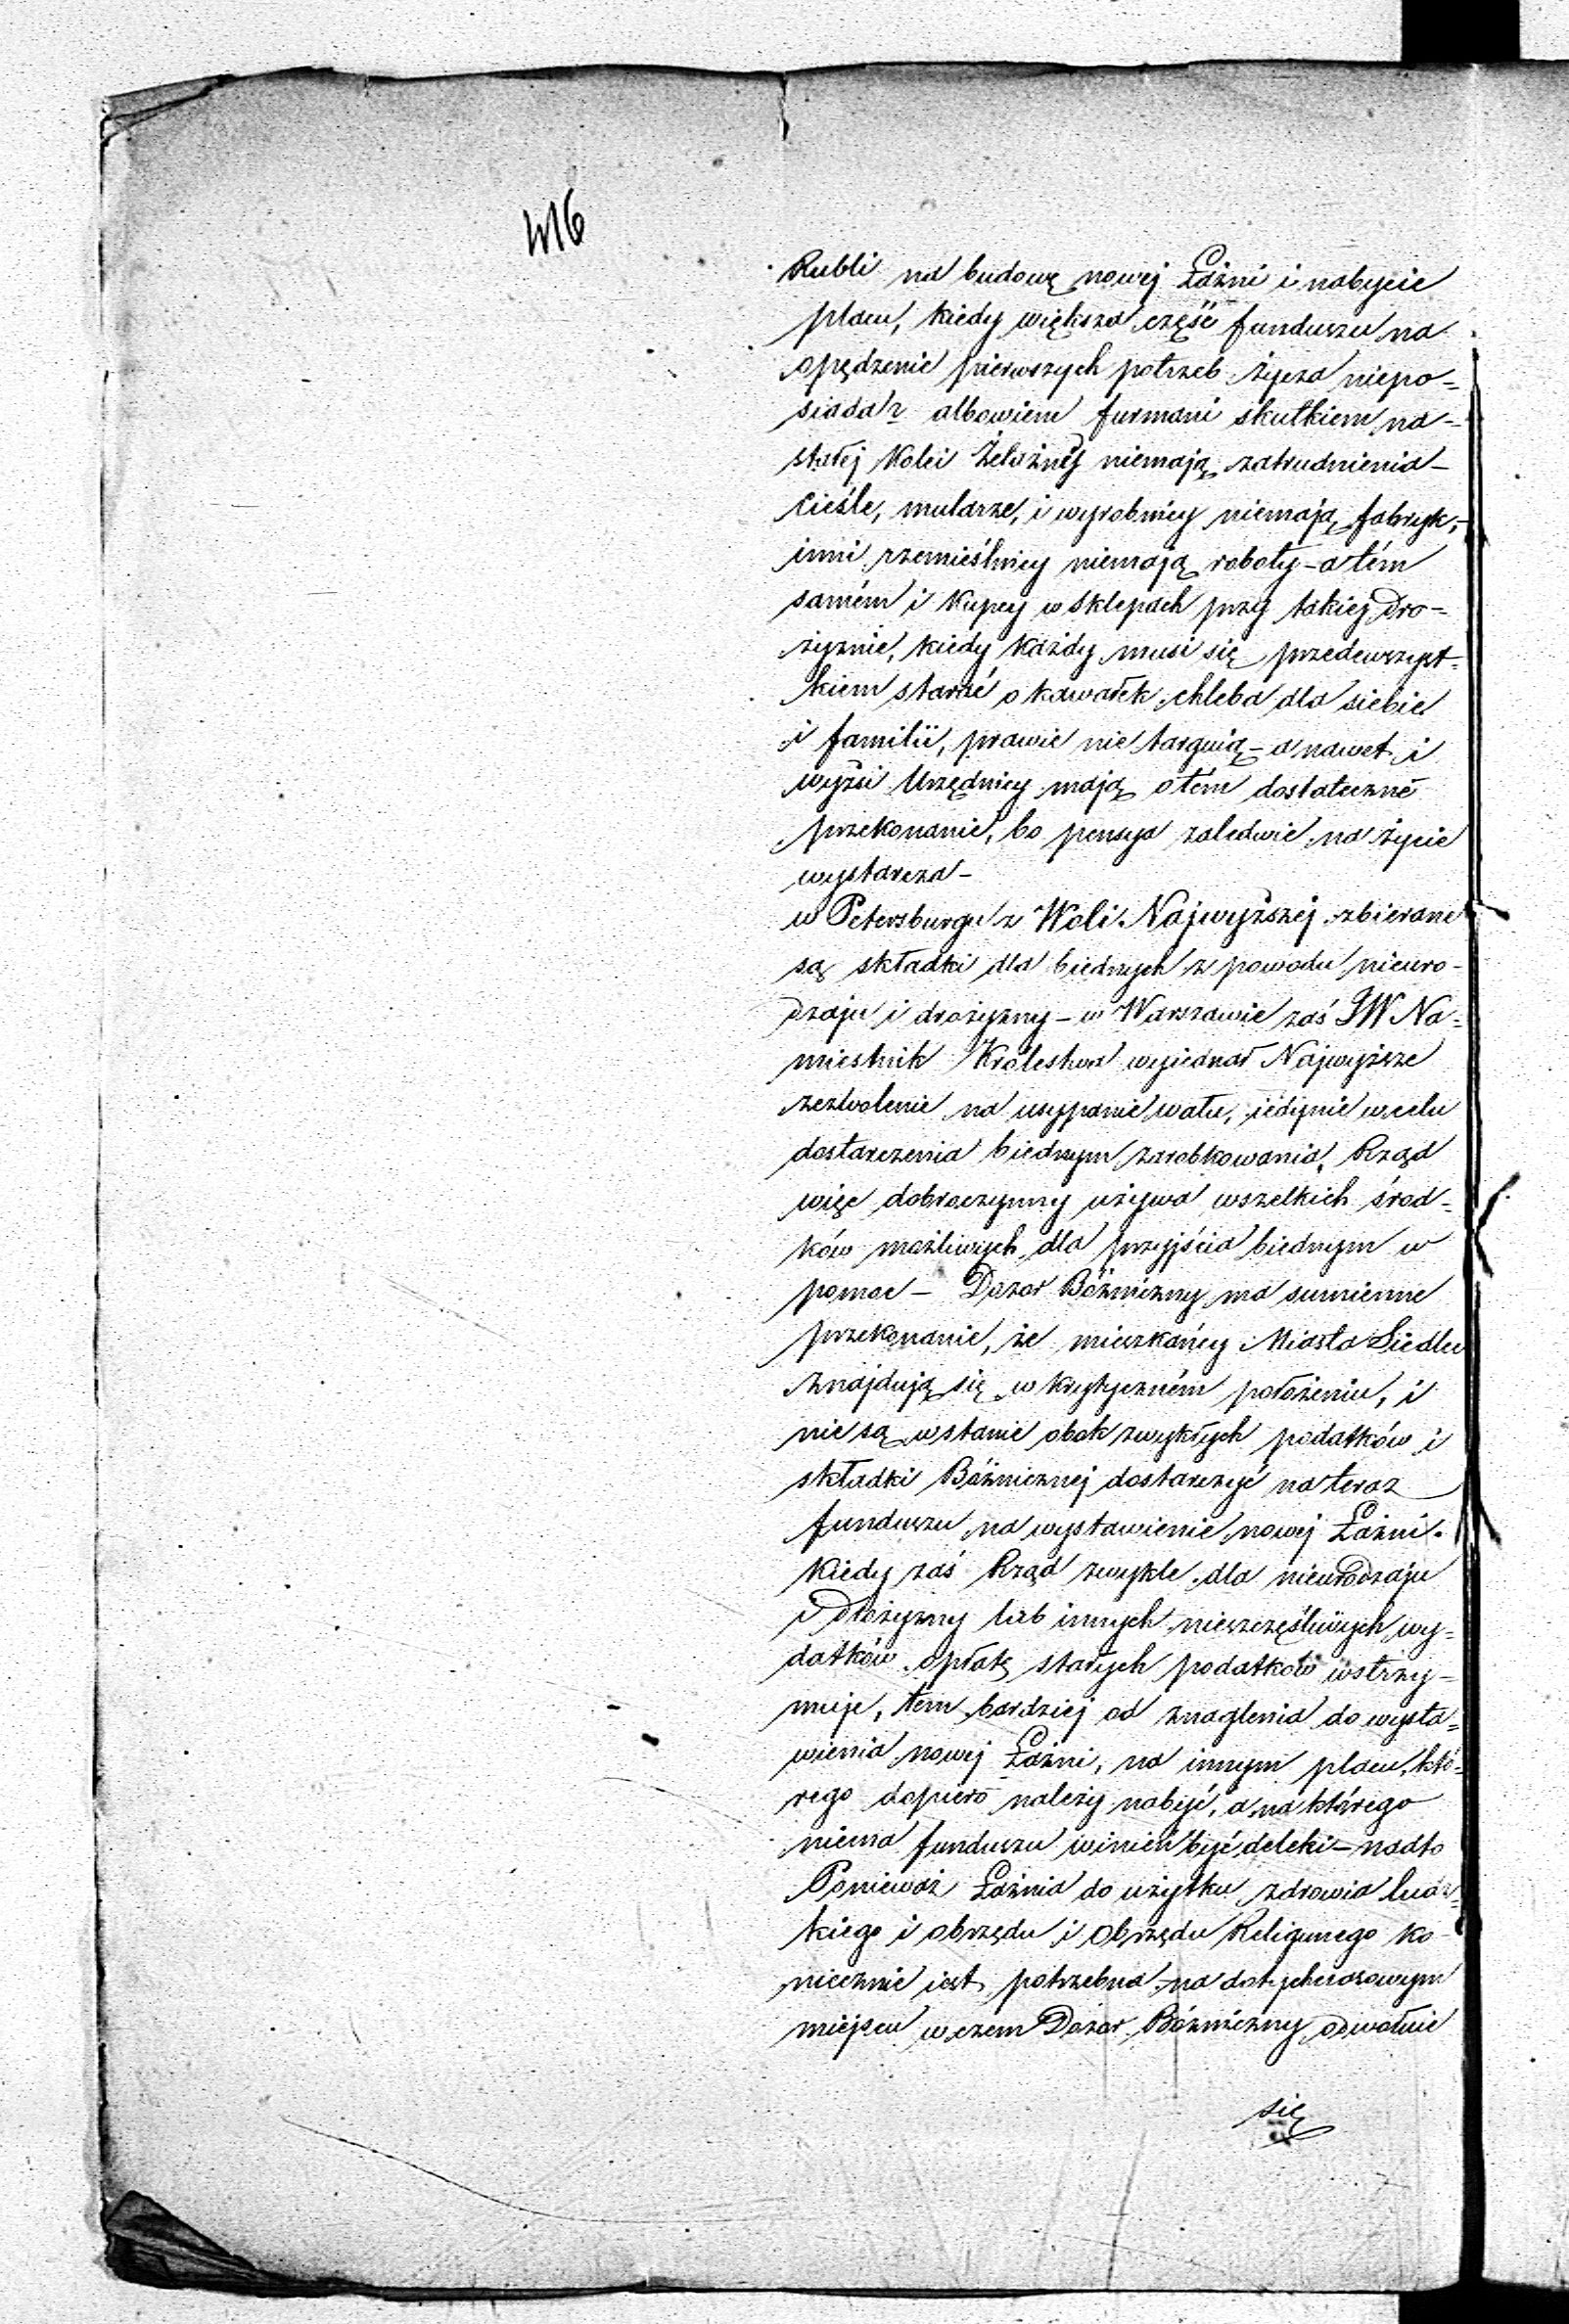 416
Rubli na budowę nowej Łaźni i nabycie
placu, kiedy większa część funduszu na
opędzenie pierwszych potrzeb życia niepo=
siada albowiem furmani skutkiem na=
stałej Kolei Żelaznej niemają zatrudnienia –
Cieśle, mularze, i wyrobnicy niemają fabryk,
inni rzemieślnicy niemają roboty – a tém
samém i Kupcy w sklepach przy takiej dro=
żyznie, kiedy każdy musi się przedewszyst=
kiem starać o kawałek chleba dla siebie
i familii, prawie nie targuią – a nawet i
wyżsi Urzędnicy mają o tém dostateczne
przekonanie, bo pensya zaledwie na życie
wystarcza –
w Petersburgu z Woli Najwyższej zbierane
są składki dla biednych z powodu nieuro-
dzaju i drożyzny – w Warszawie zaś JW Na=
miestnik Królestwa wyiednał Najwyższe
zezwolenie na usypanie wału, iedynie w celu
dostarczenia biednym zarobkowania, Rząd
więc dobroczynny używa wszelkich środ=
ków możliwych dla przyjścia biednym w
pomoc – Dozór Bóżniczny ma sumienne
przekonanie, że mieszkańcy Miasta Siedlec
znajdują się w krytyczném położeniu, i
nie są w stanie obok zwykłych podatków i
składki Bóżnicznej dostarczyć na teraz
funduszu na wystawienie nowej Łaźni.
Kiedy zaś Rząd zwykle dla nieurodzaju
i drożyzny lub innych nieszczęśliwych wy=
datków opłatę stałych podatków wstrzy-
muje, tem bardziej od znaglenia do wysta=
wienia nowej Łaźni, na innym placu, któ=
rego dopiero należy nabyć, a na którego
niema funduszu winien być daleki – nadto
Ponieważ Łaźnia do użytku zdrowia ludz=
kiego i obrzędu i Obrzędu Religijnego ko-
niecznie iest potrzebna na dotychczasowym
miejscu w czem Dozór Bóżniczny odwołuie
się